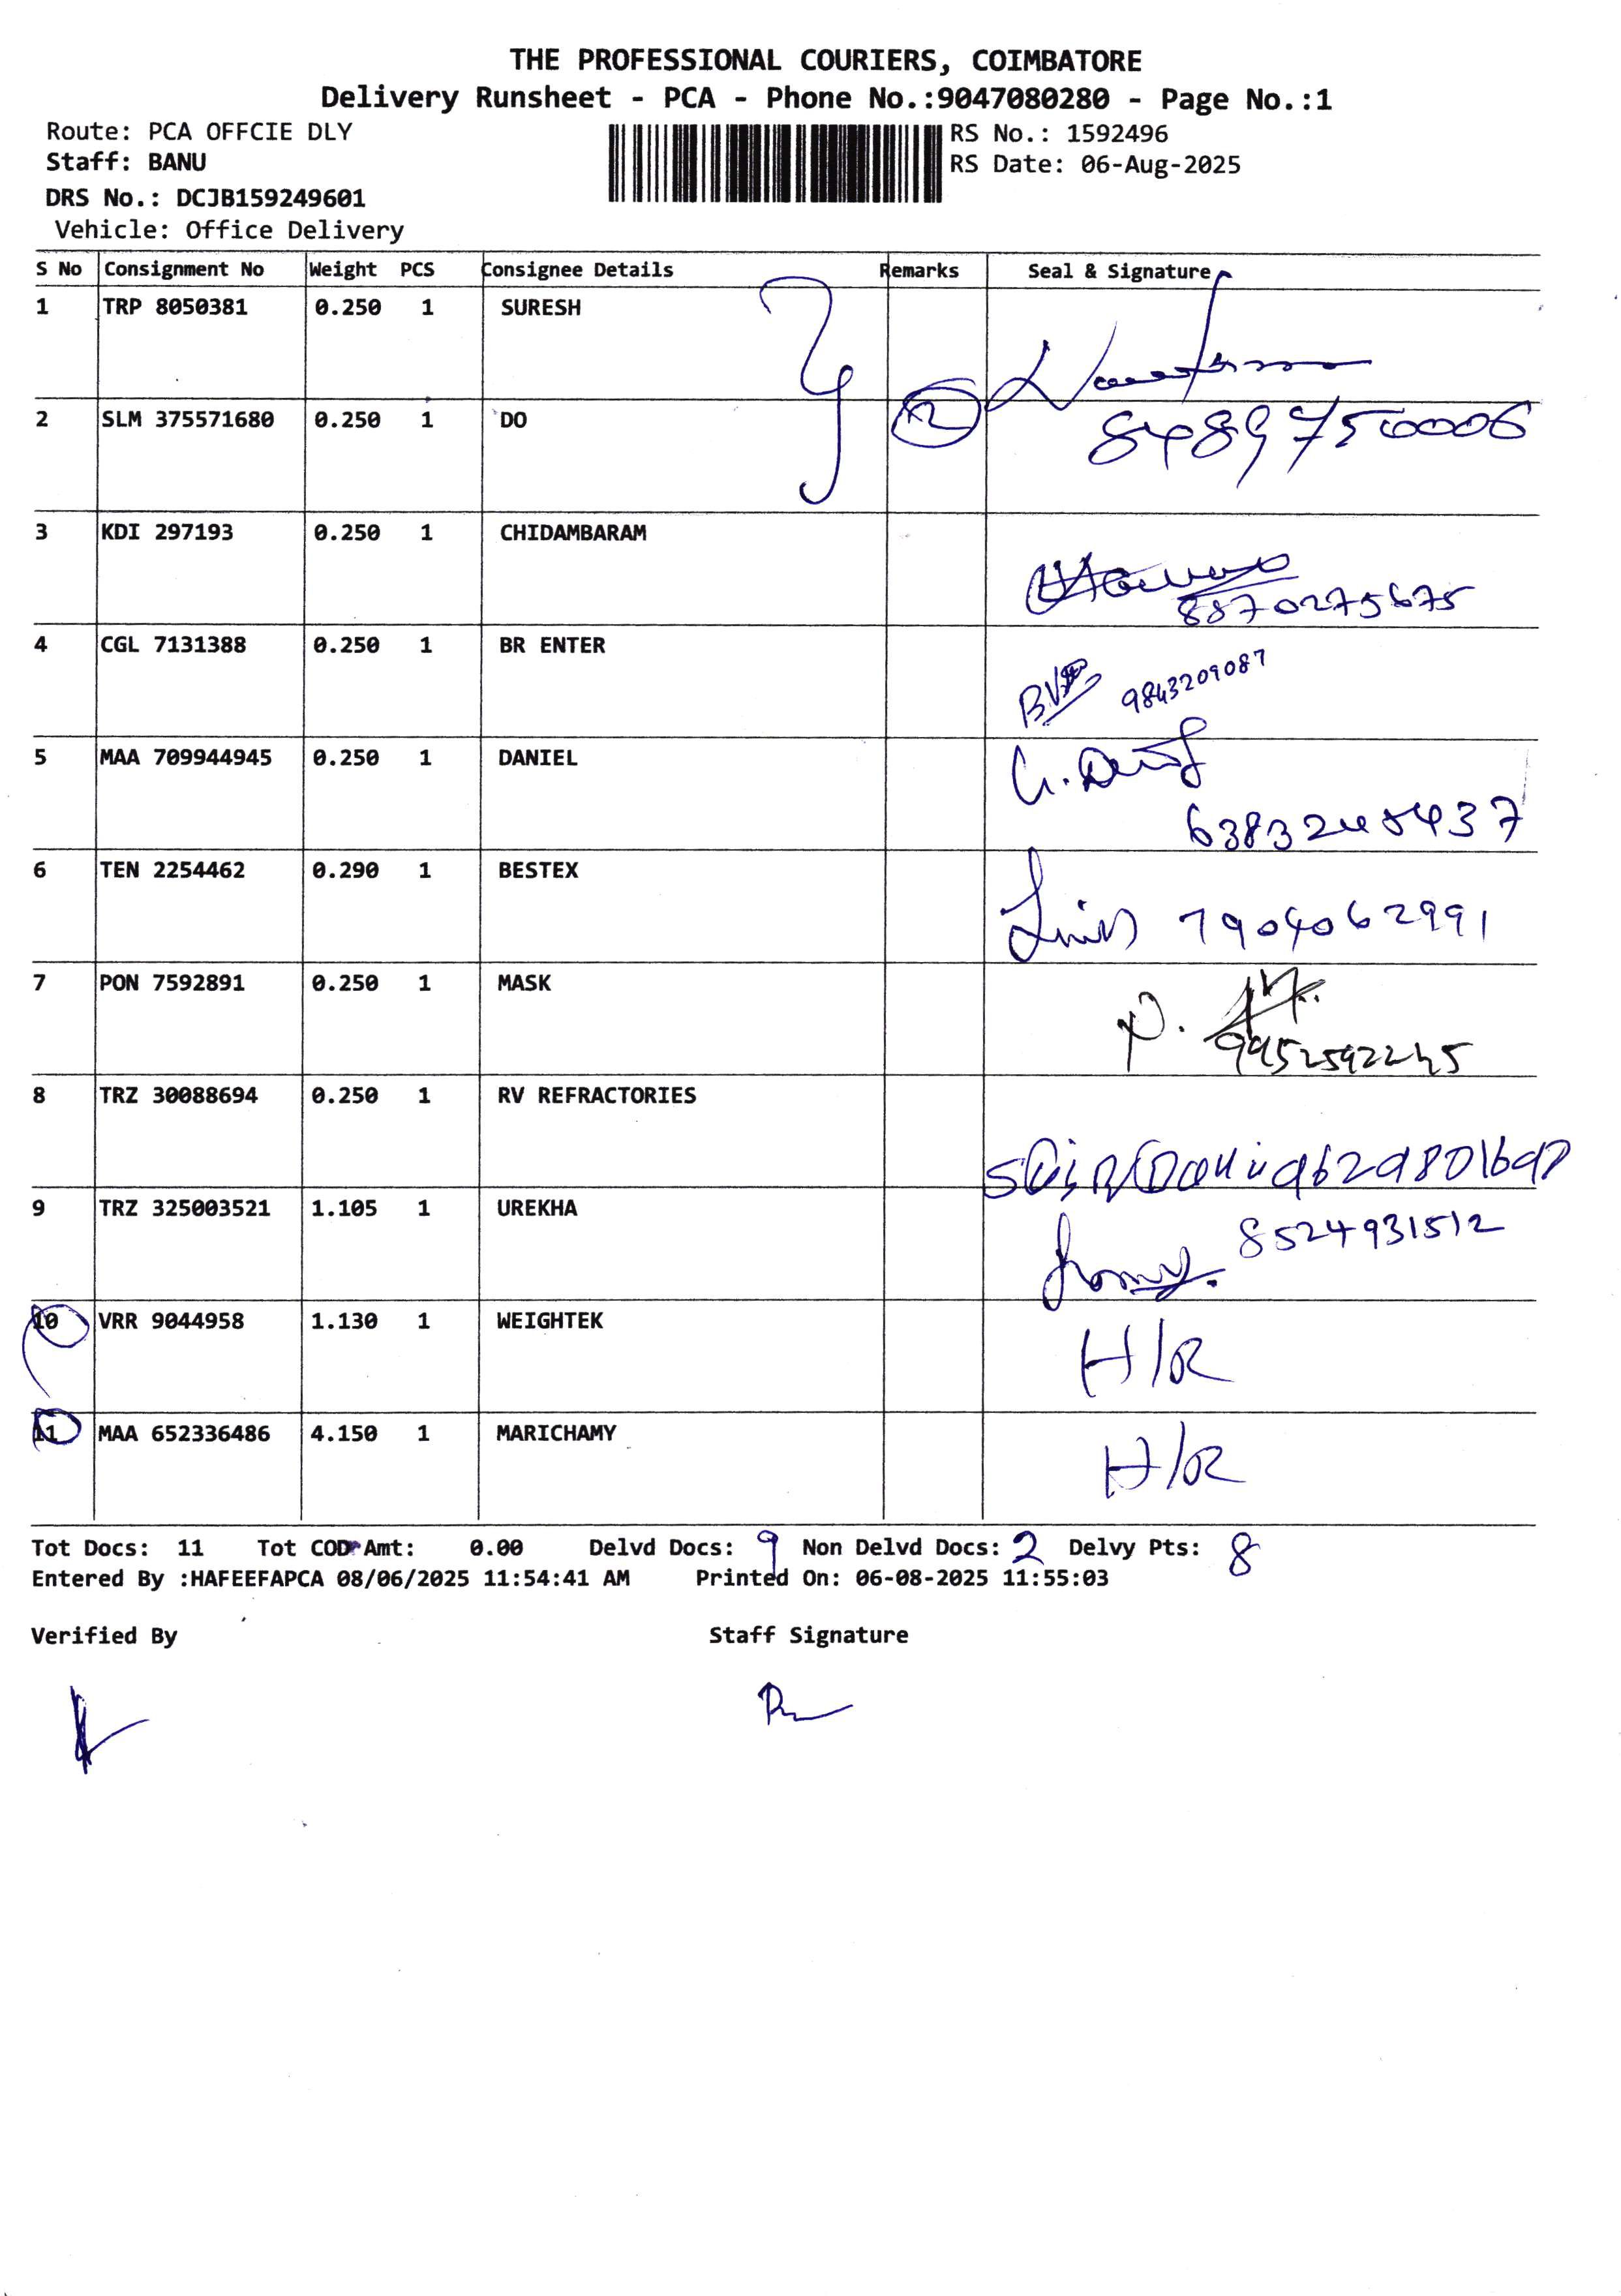 THE PROFESSIONAL COURIERS, COIMBATORE
Delivery Runsheet - PCA - Phone No.:9047080280 - Page No.:1
Route: PCA OFFCIE DLY
RS No.: 1592496
Staff: BANU
RS Date: 06-Aug-2025
DRS No.: DCJB159249601
Vehicle: Office Delivery
S No Consignment No Weight PCS Consignee Details Remarks Seal & Signature
1 TRP 8050381 0.250 1 SURESH
2 SLM 375571680 0.250 1 DO
3 KDI 297193 0.250 1 CHIDAMBARAM
8870275675
4 CGL 7131388 0.250 1 BR ENTER
9843209087
5 MAA 709944945 0.250 1 DANIEL
6 TEN 2254462 0.290 1 BESTEX
7904062991
7 PON 7592891 0.250 1 MASK
8 TRZ 30088694 0.250 1 RV REFRACTORIES
9 TRZ 325003521 1.105 1 UREKHA
8524931512
10 VRR 9044958 1.130 1 WEIGHTEK
H/R
11 MAA 652336486 4.150 1 MARICHAMY
H/R
Tot Docs: 11 Tot COD Amt: 0.00 Delvd Docs: 9 Non Delvd Docs: 2 Delvy Pts: 8
Entered By :HAFEEFAPCA 08/06/2025 11:54:41 AM Printed On: 06-08-2025 11:55:03
Verified By Staff Signature